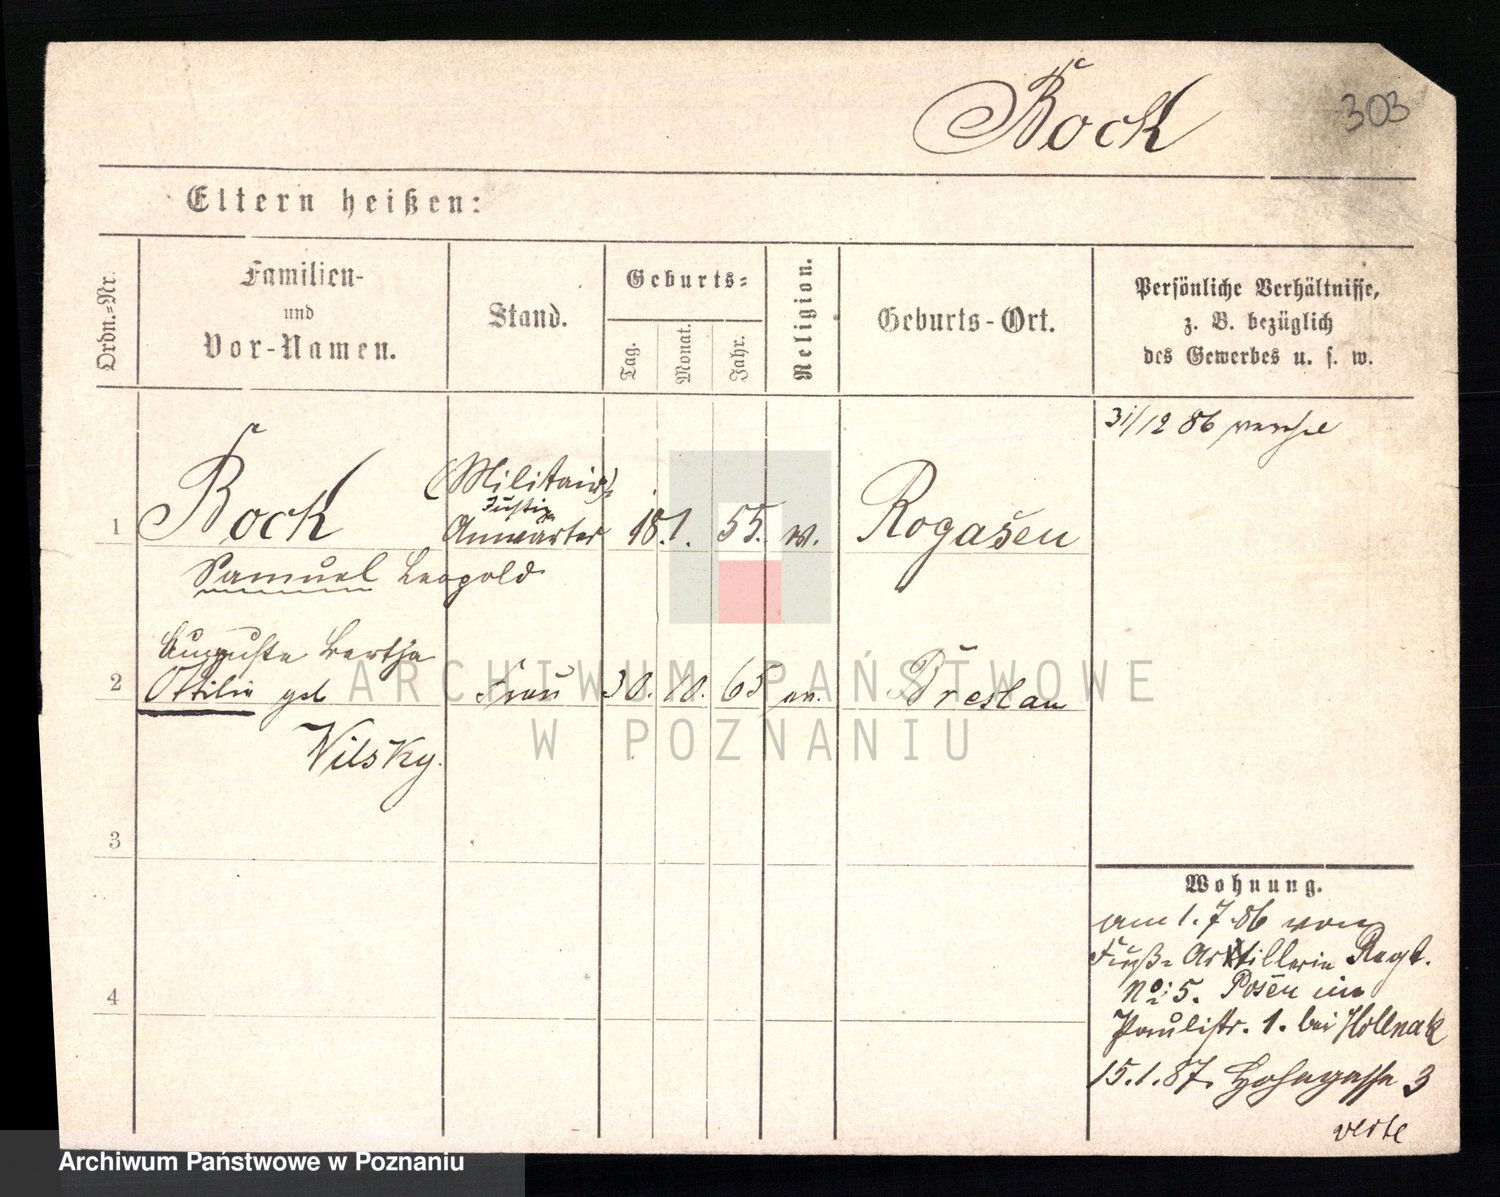 Bock
303
Eltern heißen:
Ordn.-Nr.
Familien-
und
Vor-Namen.
Stand.
Geburts-
Tag.
Monat.
Jahr.
Religion.
Geburts-Ort.
Persönliche Verhältnisse,
z. B. bezüglich
des Gewerbes u. s. w.
31/12 86
(Militair)-
Justiz
1 Bock Anwärter 18. 1. 55. Rogasen
Samuel Leopold
Auguste Bertha
2 Ottilie geb Frau 30. 10. 65 ev. Breslau
Wilsky.
3
4
Wohnung.
am 1. 7. 86 von
Fuß-Artillerie Regt.
No: 5. Posen in
Paulistr. 1. bei Hollnak
15. 1. 87. Hohegasse 3
verte
ARCHIWUM PAŃSTWOWE
W POZNANIU
Archiwum Państwowe w Poznaniu